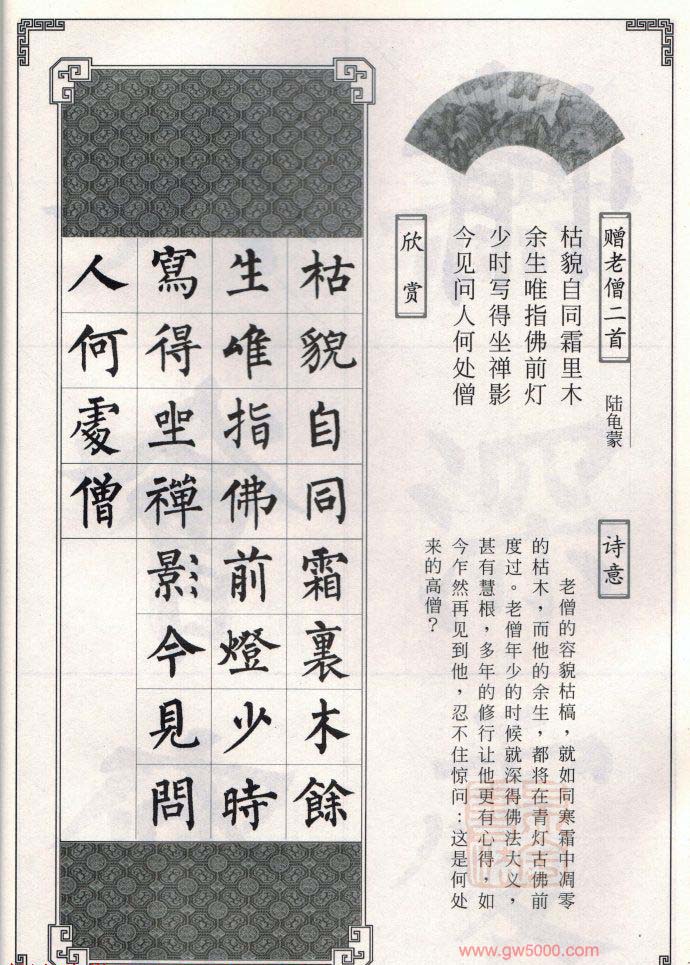 赠老僧二首
陆龟蒙
枯貌自同霜里木
余生唯指佛前灯
少时写得坐禅影
今见问人何处僧
欣赏
诗意
老僧的容貌枯槁，就如同寒霜中凋零
的枯木，而他的余生，都将在青灯古佛前
度过。老僧年少的时候就深得佛法大义，
甚有慧根，多年的修行让他更有心得，如
今乍然再见到他，忍不住惊问：这是何处
来的高僧？
枯貌自同霜裏木餘
生唯指佛前燈少時
寫得坐禪影今見問
人何處僧
www.gw5000.com